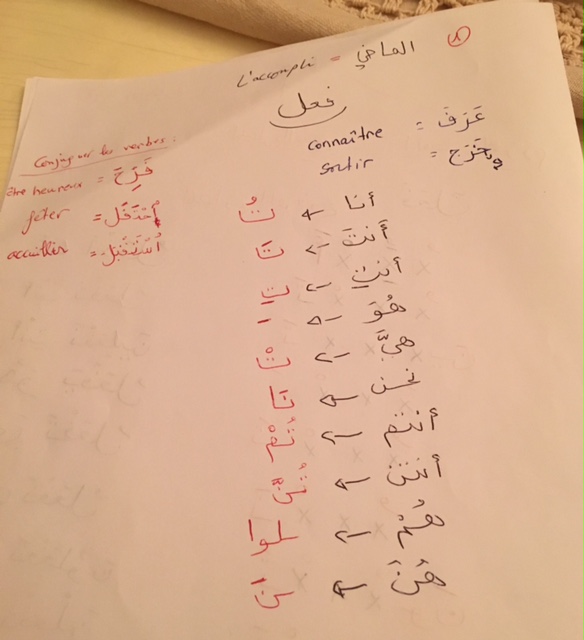 ① الماضي = L'accompli
فعل
عَرَفَ = connaître
خَرَجَ = sortir
Conjuguer les verbes :
être heureux = فَرِحَ
fêter = اِحْتَفَلَ
accueillir = اُسْتَقْبَلَ
أنا ← تُ
أَنتَ ← تَ
أنتِ ← تِ
هُوَ ← -
هيَّ ← تْ
نحن ← نَا
أنتم ← تُمْ
أنتن ← تُنَّ
هُمْ ← ـوا
هُنَّ ← نَ